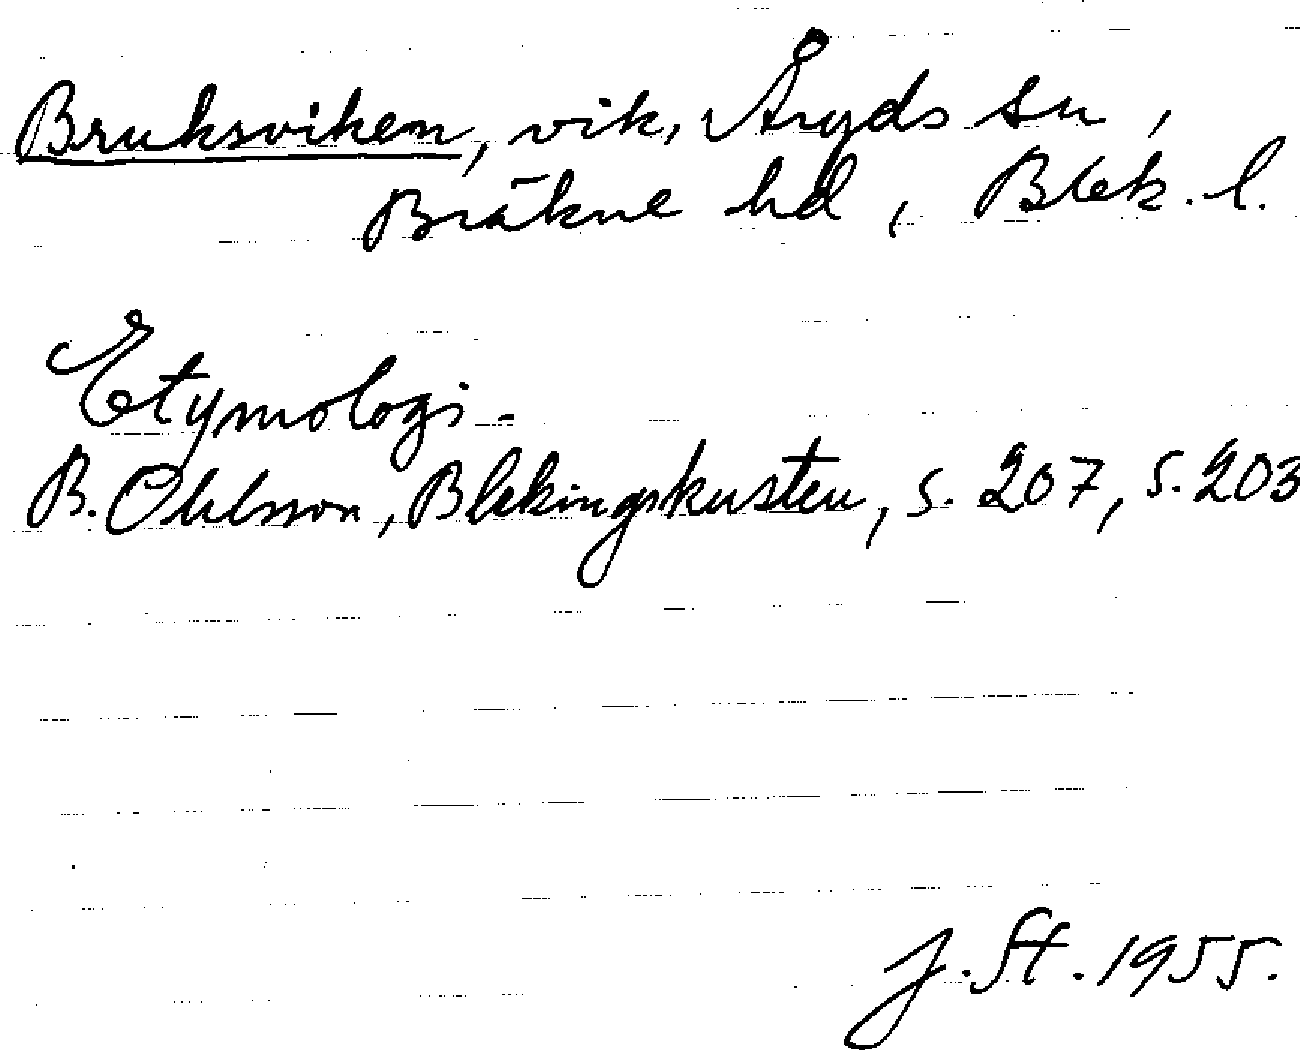 Bruksviken, vik, Åryds sn,
Bräkne hd, Blek. l.
Etymologi.
B. Ohlsson, Blekingskusten, s. 207, s. 203
J. St. 1955.